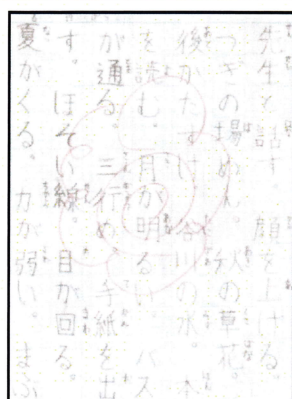 先生と話す。顔を上げる。
つぎの場めん。秋の草花。
後かたづけ。谷川の水。本
を読む。月が明るい。バス
が通る。三行め。手紙を出
す。ほそい線。目が回る。
夏がくる。力が弱い。まぶ